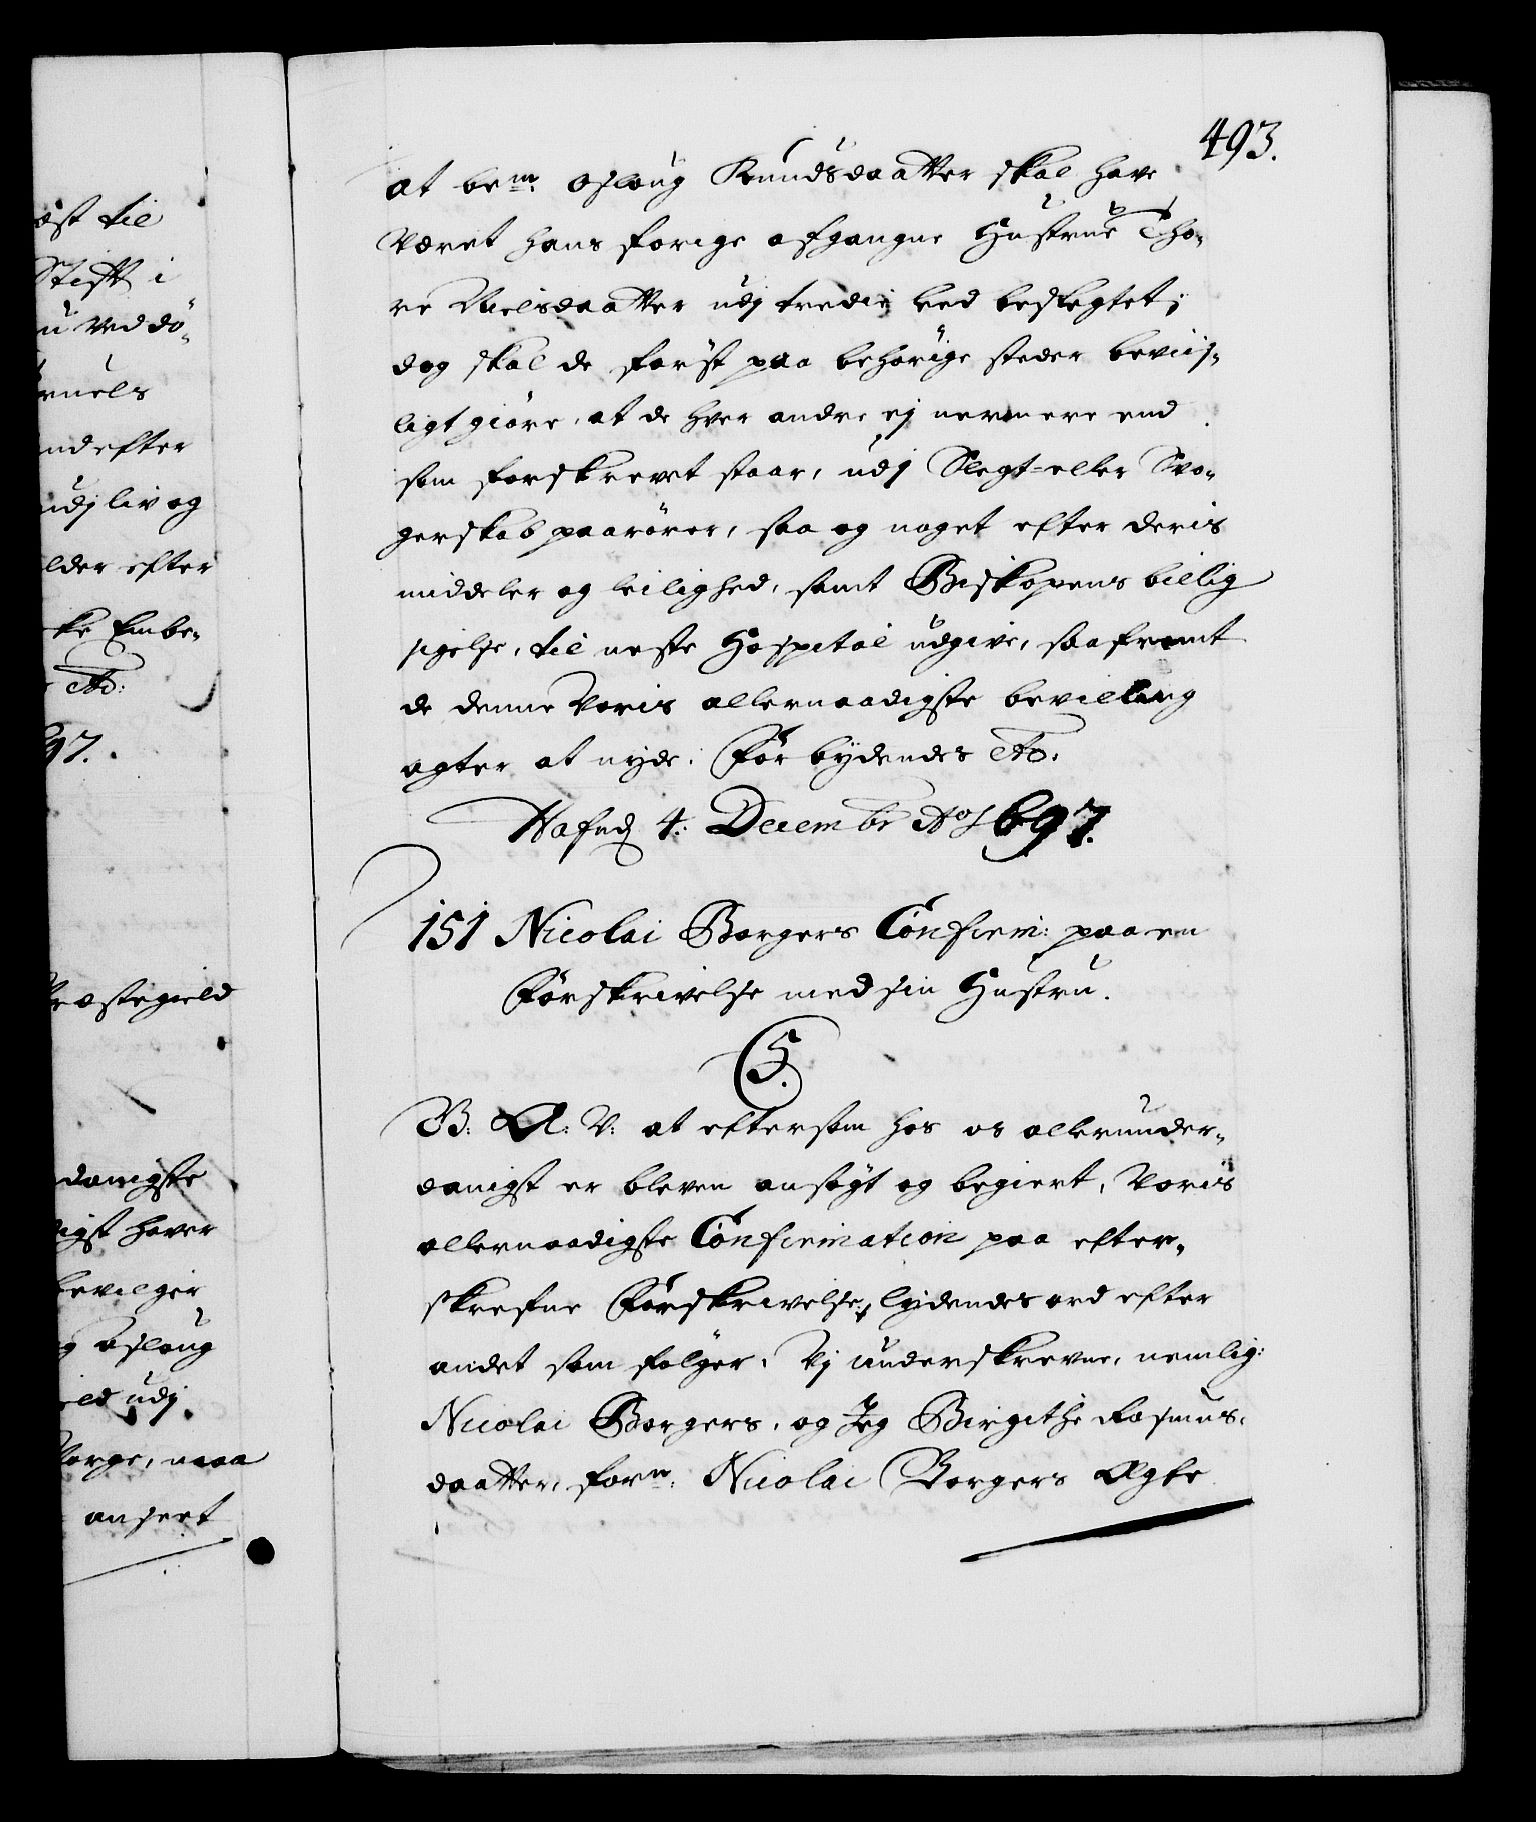 493.
at bem: Aslaug Knudsdaatter skal have
været hans forige afgangne Hustrue Tho-
re Nielsdaatter udj tredie led beslegtet;
dog skal de først paa behörige steder beviis-
ligt giöre, at de hver andre ej nermere end
som forskrevet staar, udj Slegt- eller Svo-
gerskab paarörer, saa og noget efter deris
middeler og leilighed, samt Biskopens billig
sigelse, til neste Hospital udgive, saafremt
de denne Voris allernaadigste bevilling
agter at nyde. Forbydendes etc:
Hafn: 4: Decembr Ao 1697.
151 Nicolai Borgers Confirm: paa en
Forskrivelse med sin Hustru.
C5.
G: A: V: at eftersom hos os allerunder-
danigst er bleven ansögt og begiert, Voris
allernaadigste Confirmation paa efter-
skrefne Forskrivelse, lydendes ord efter
andet som fölger. Vj underskrevne, nemlig:
Nicolai Borgers, og Jeg Birgithe Rasmus-
daatter, forn: Nicolai Borgers Ægte
æst til
Stift i
u Ved dö-
ruels
nd efter
udj liv og
lder efter
ke Embe-
etc:
97.
Præstegield
danigste
igst haver
bevilger
g Aslaug
ld udj
Norge, maa
anseet